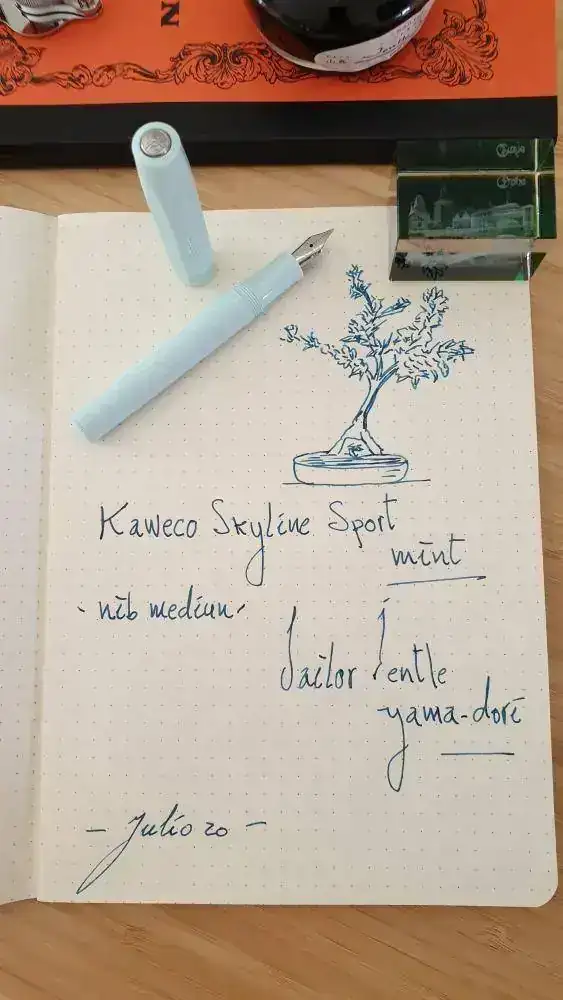 N
Kaweco Skyline Sport
mint
- nib mediun -
Sailor Jentle
yama-dori
- Julio 20 -